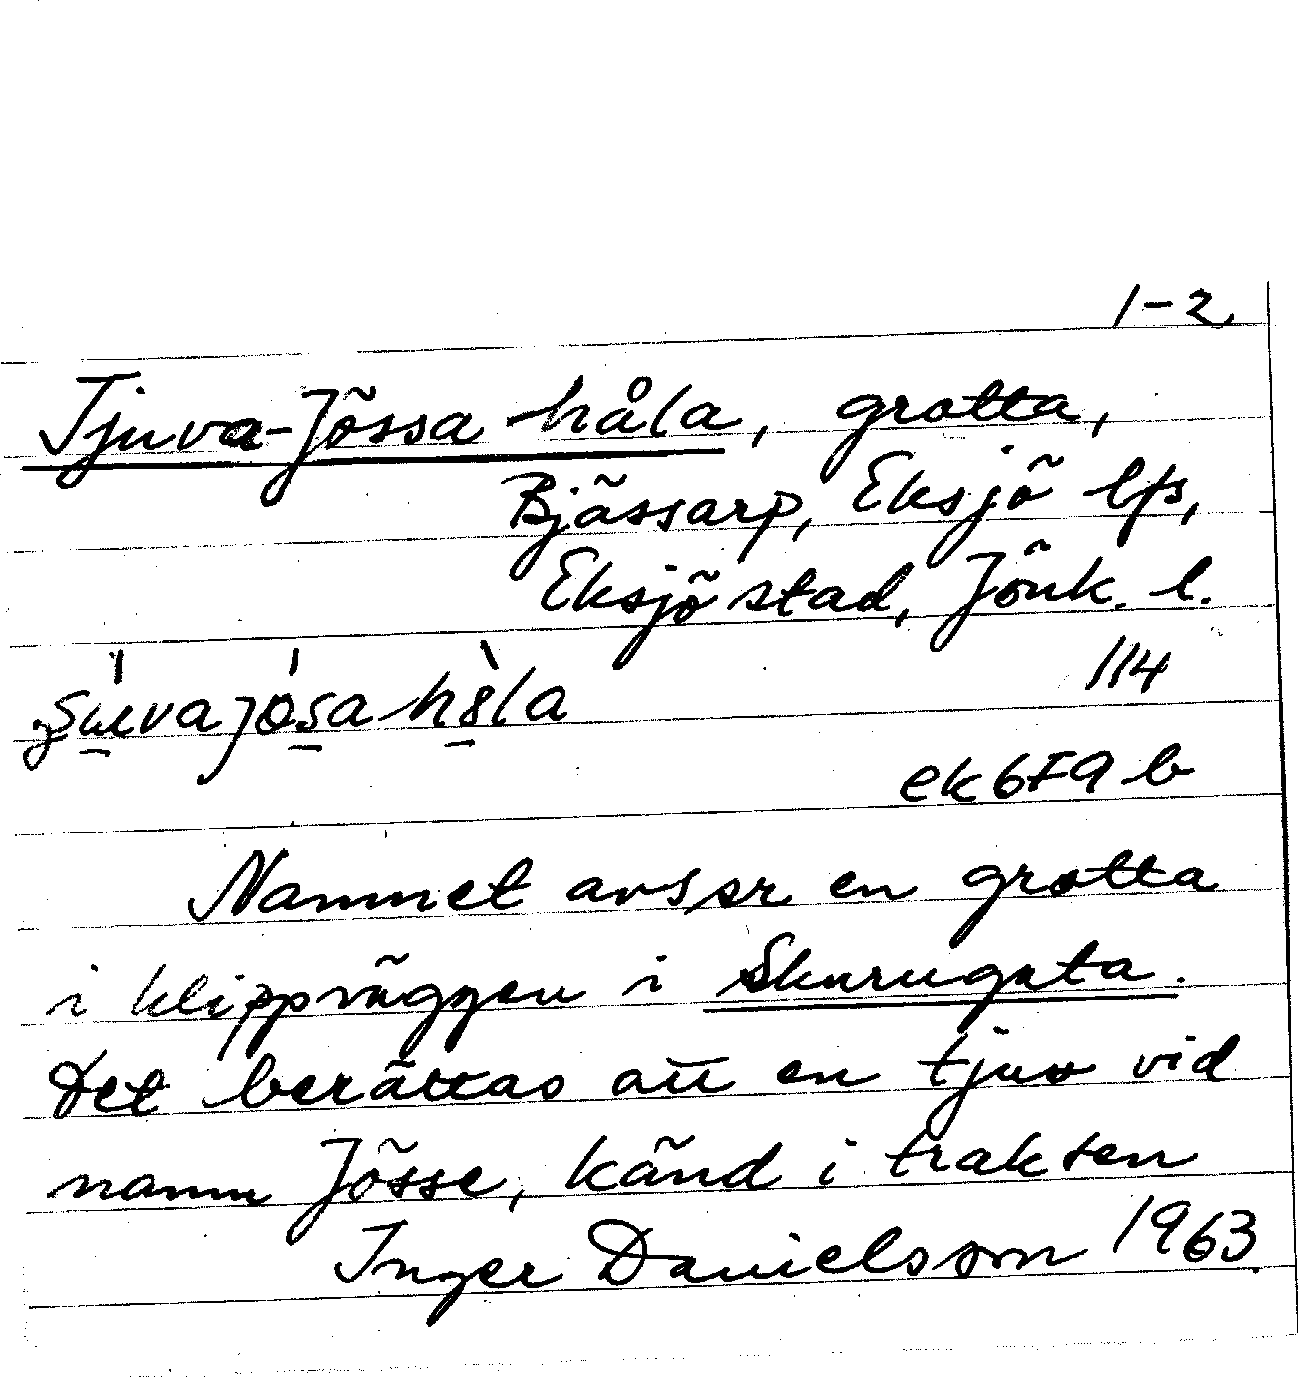 1-2
Tjuva-Jössa håla, grotta,
Bjässarp, Eksjö lfs,
Eksjö stad, Jönk. l.
114
ek 6F9 b
Namnet avser en grotta
i klippväggen i Skurugata.
Det berättas att en tjuv vid
namn Jösse, känd i trakten
Inger Danielsson 1963.